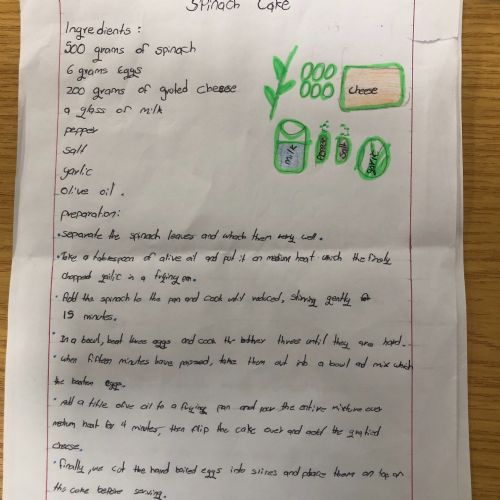 Spinach Cake
Ingredients:
500 grams of spinach
6 grams Eggs
200 grams of grated cheese
a glass of milk
pepper
salt
garlic
olive oil.
cheese
milk
Pepper
Salt
garlic
preparation:
• separate the spinach leaves and which them very well.
• Take a tablespoon of olive oil and put it on medium heat which the finely
chopped garlic in a frying pan.
• Add the spinach to the pan and cook until reduced, stirring gently
15 minutes.
• In a bowl, beat three eggs and cook the other threes until they are hard.
• when fifteen minutes have passed, take them out into a bowl ad mix which
the beaten eggs.
• Add a little olive oil to a frying pan and pour the entire mixture over
medium heat for 4 minutes, then flip the cake over and add the grated
cheese.
• finally, we cut the hard boiled eggs into slices and place them on top of
the cake before serving.